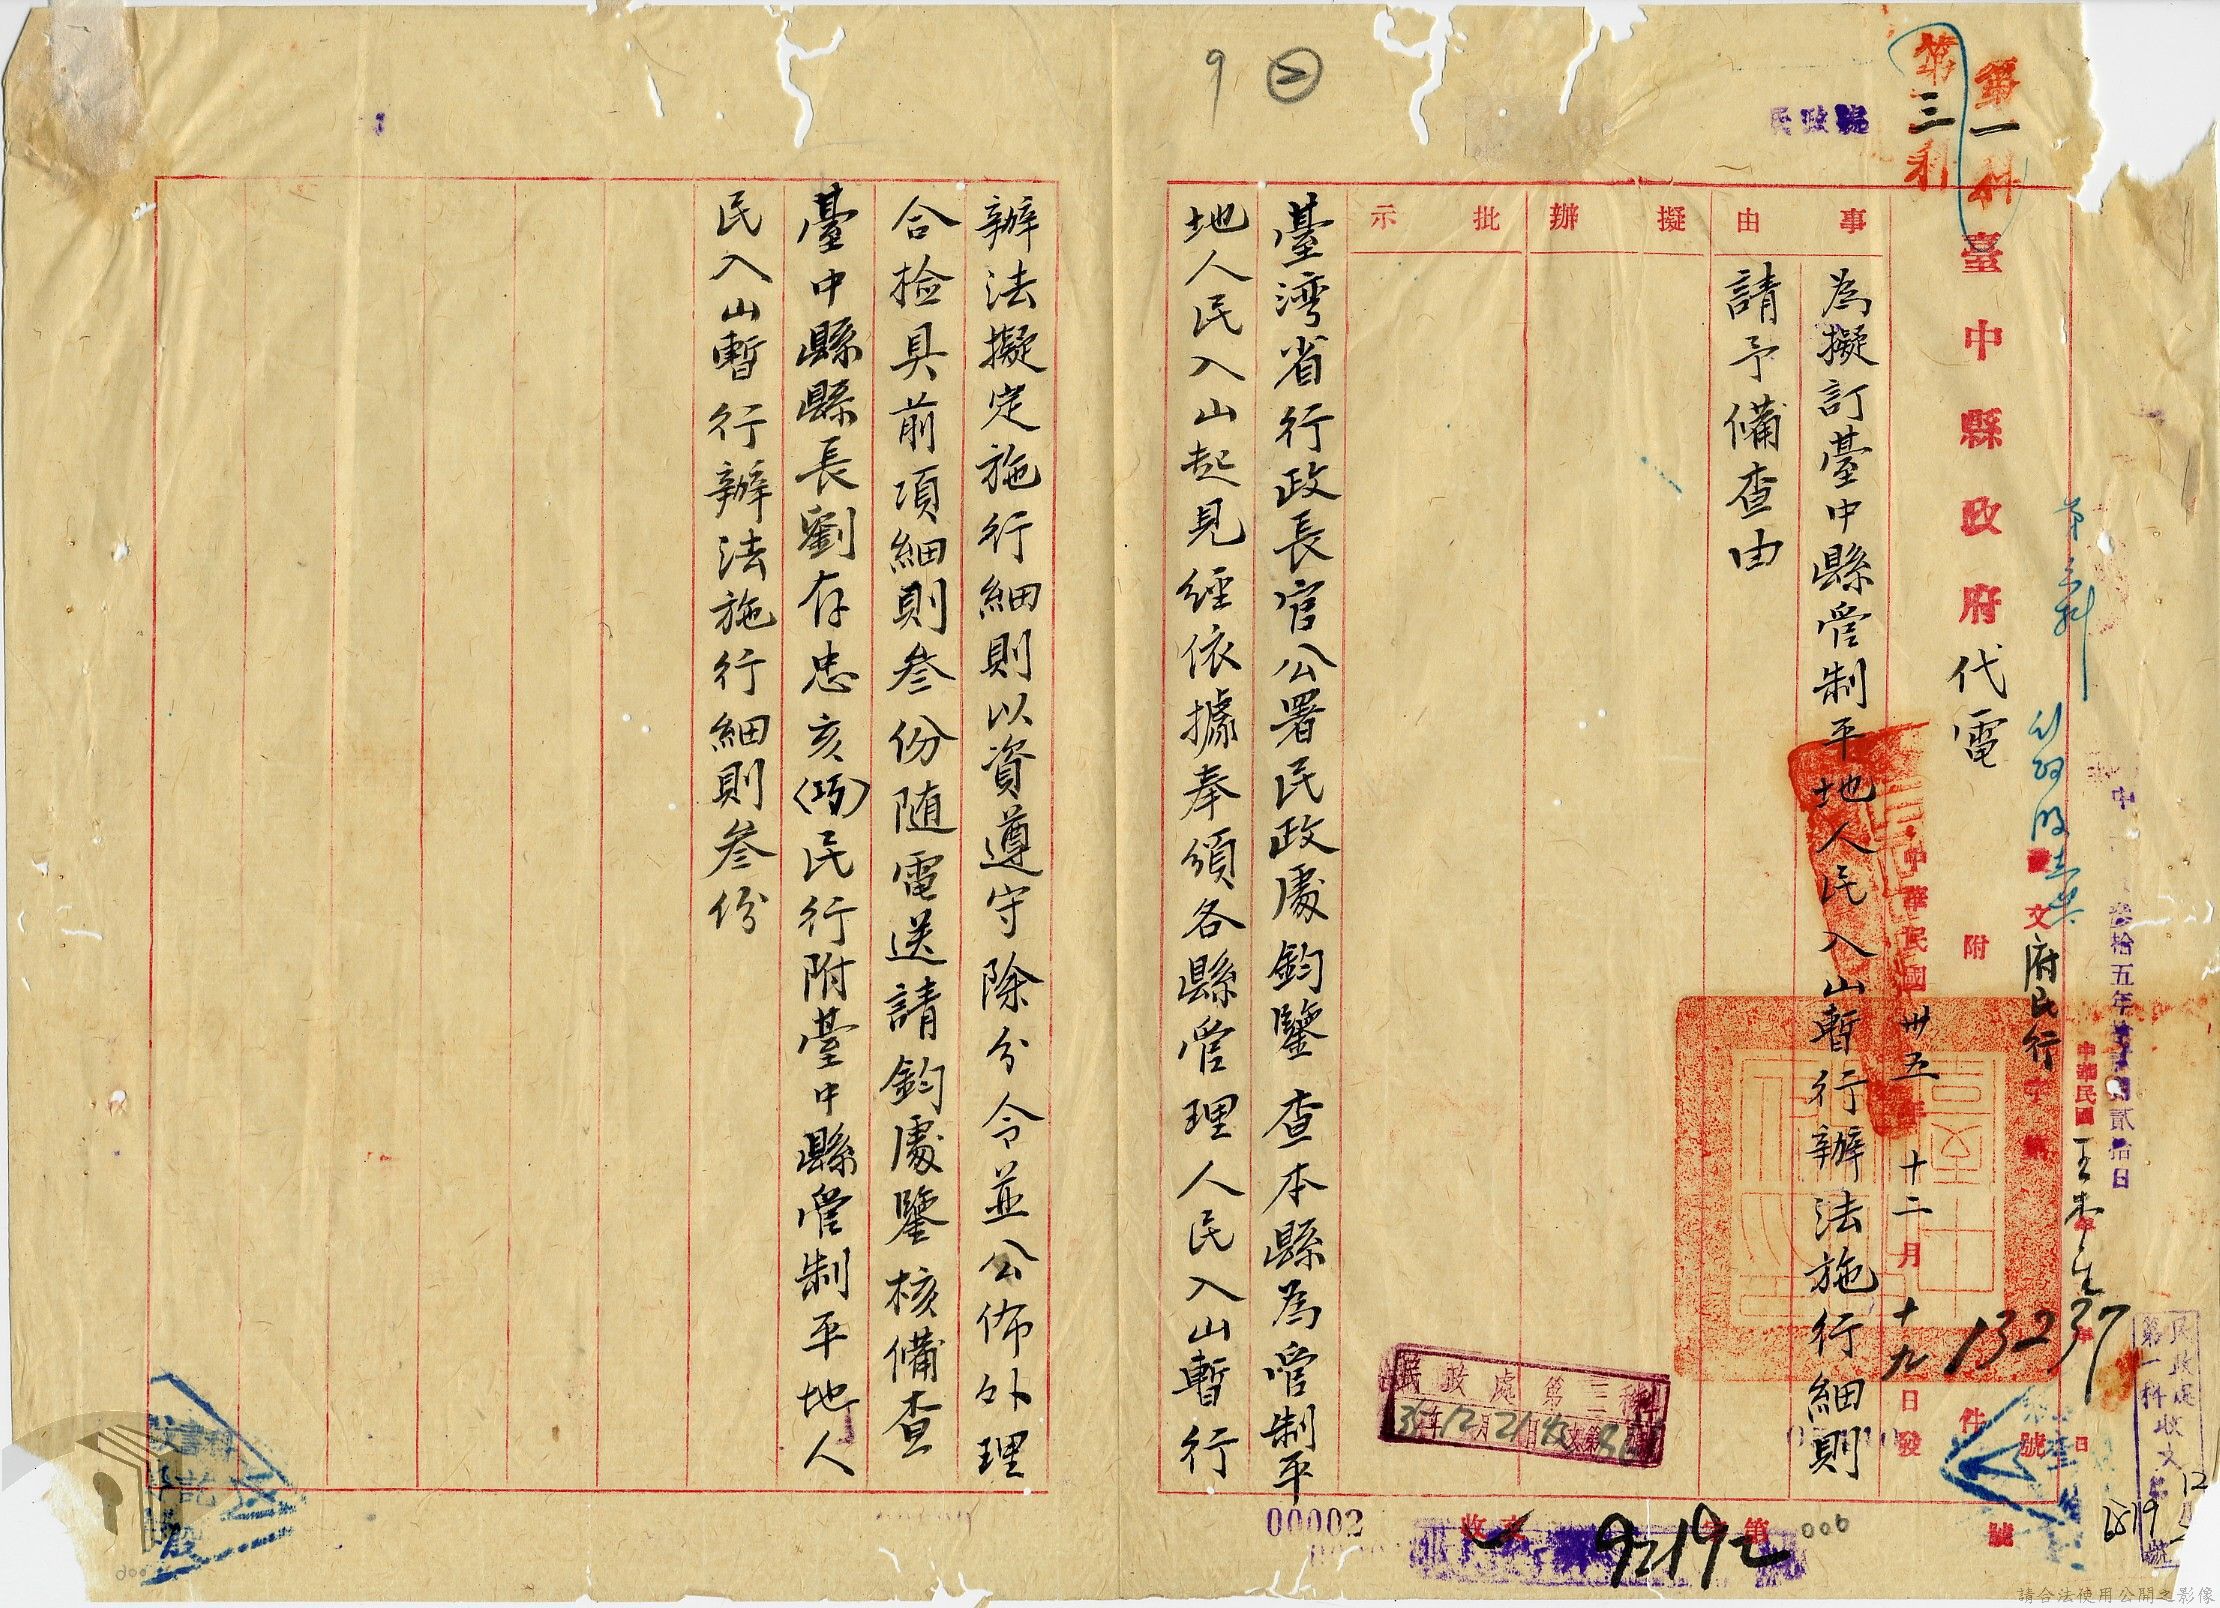 第一科
第三科
民政處
9 二
臺中縣政府代電
附件
府民行
字第
號
13237
中華民國卅五年十二月十九日發
事由
為擬訂臺中縣管制平地人民入山暫行辦法施行細則
請予備查由
擬辦
批示
臺灣省行政長官公署民政處鈞鑒查本縣為管制平
地人民入山起見經依據奉頒各縣管理人民入山暫行
辦法擬定施行細則以資遵守除分令並公佈外理
合檢具前項細則叁份随電送請鈞處鑒核備查
臺中縣縣長劉存忠亥(巧)民行附臺中縣管制平地人
民入山暫行辦法施行細則叁份
民政處第三科
35年12月21日
民政處
第一科收文
2519
12
收文
第
92192
號
00002
006
請合法使用公開之影像